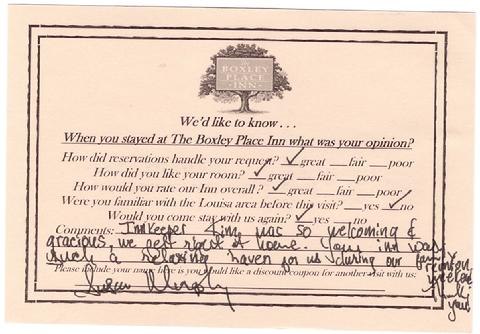 THE
BOXLEY
PLACE
INN
We'd like to know . . .
When you stayed at The Boxley Place Inn what was your opinion?
How did reservations handle your request? ✓great __fair __poor
How did you like your room? ✓great __fair __poor
How would you rate our Inn overall? ✓great __fair __poor
Were you familiar with the Louisa area before this visit? __yes ✓no
Would you come stay with us again? ✓yes __no
Comments: Innkeeper Kim was so welcoming &
gracious, we felt right at home. Your inn was
such a relaxing haven for us during our family
reunion
weekend
Thank
you!
Please include your name here if you would like a discount coupon for another visit with us:
Susan Murphy